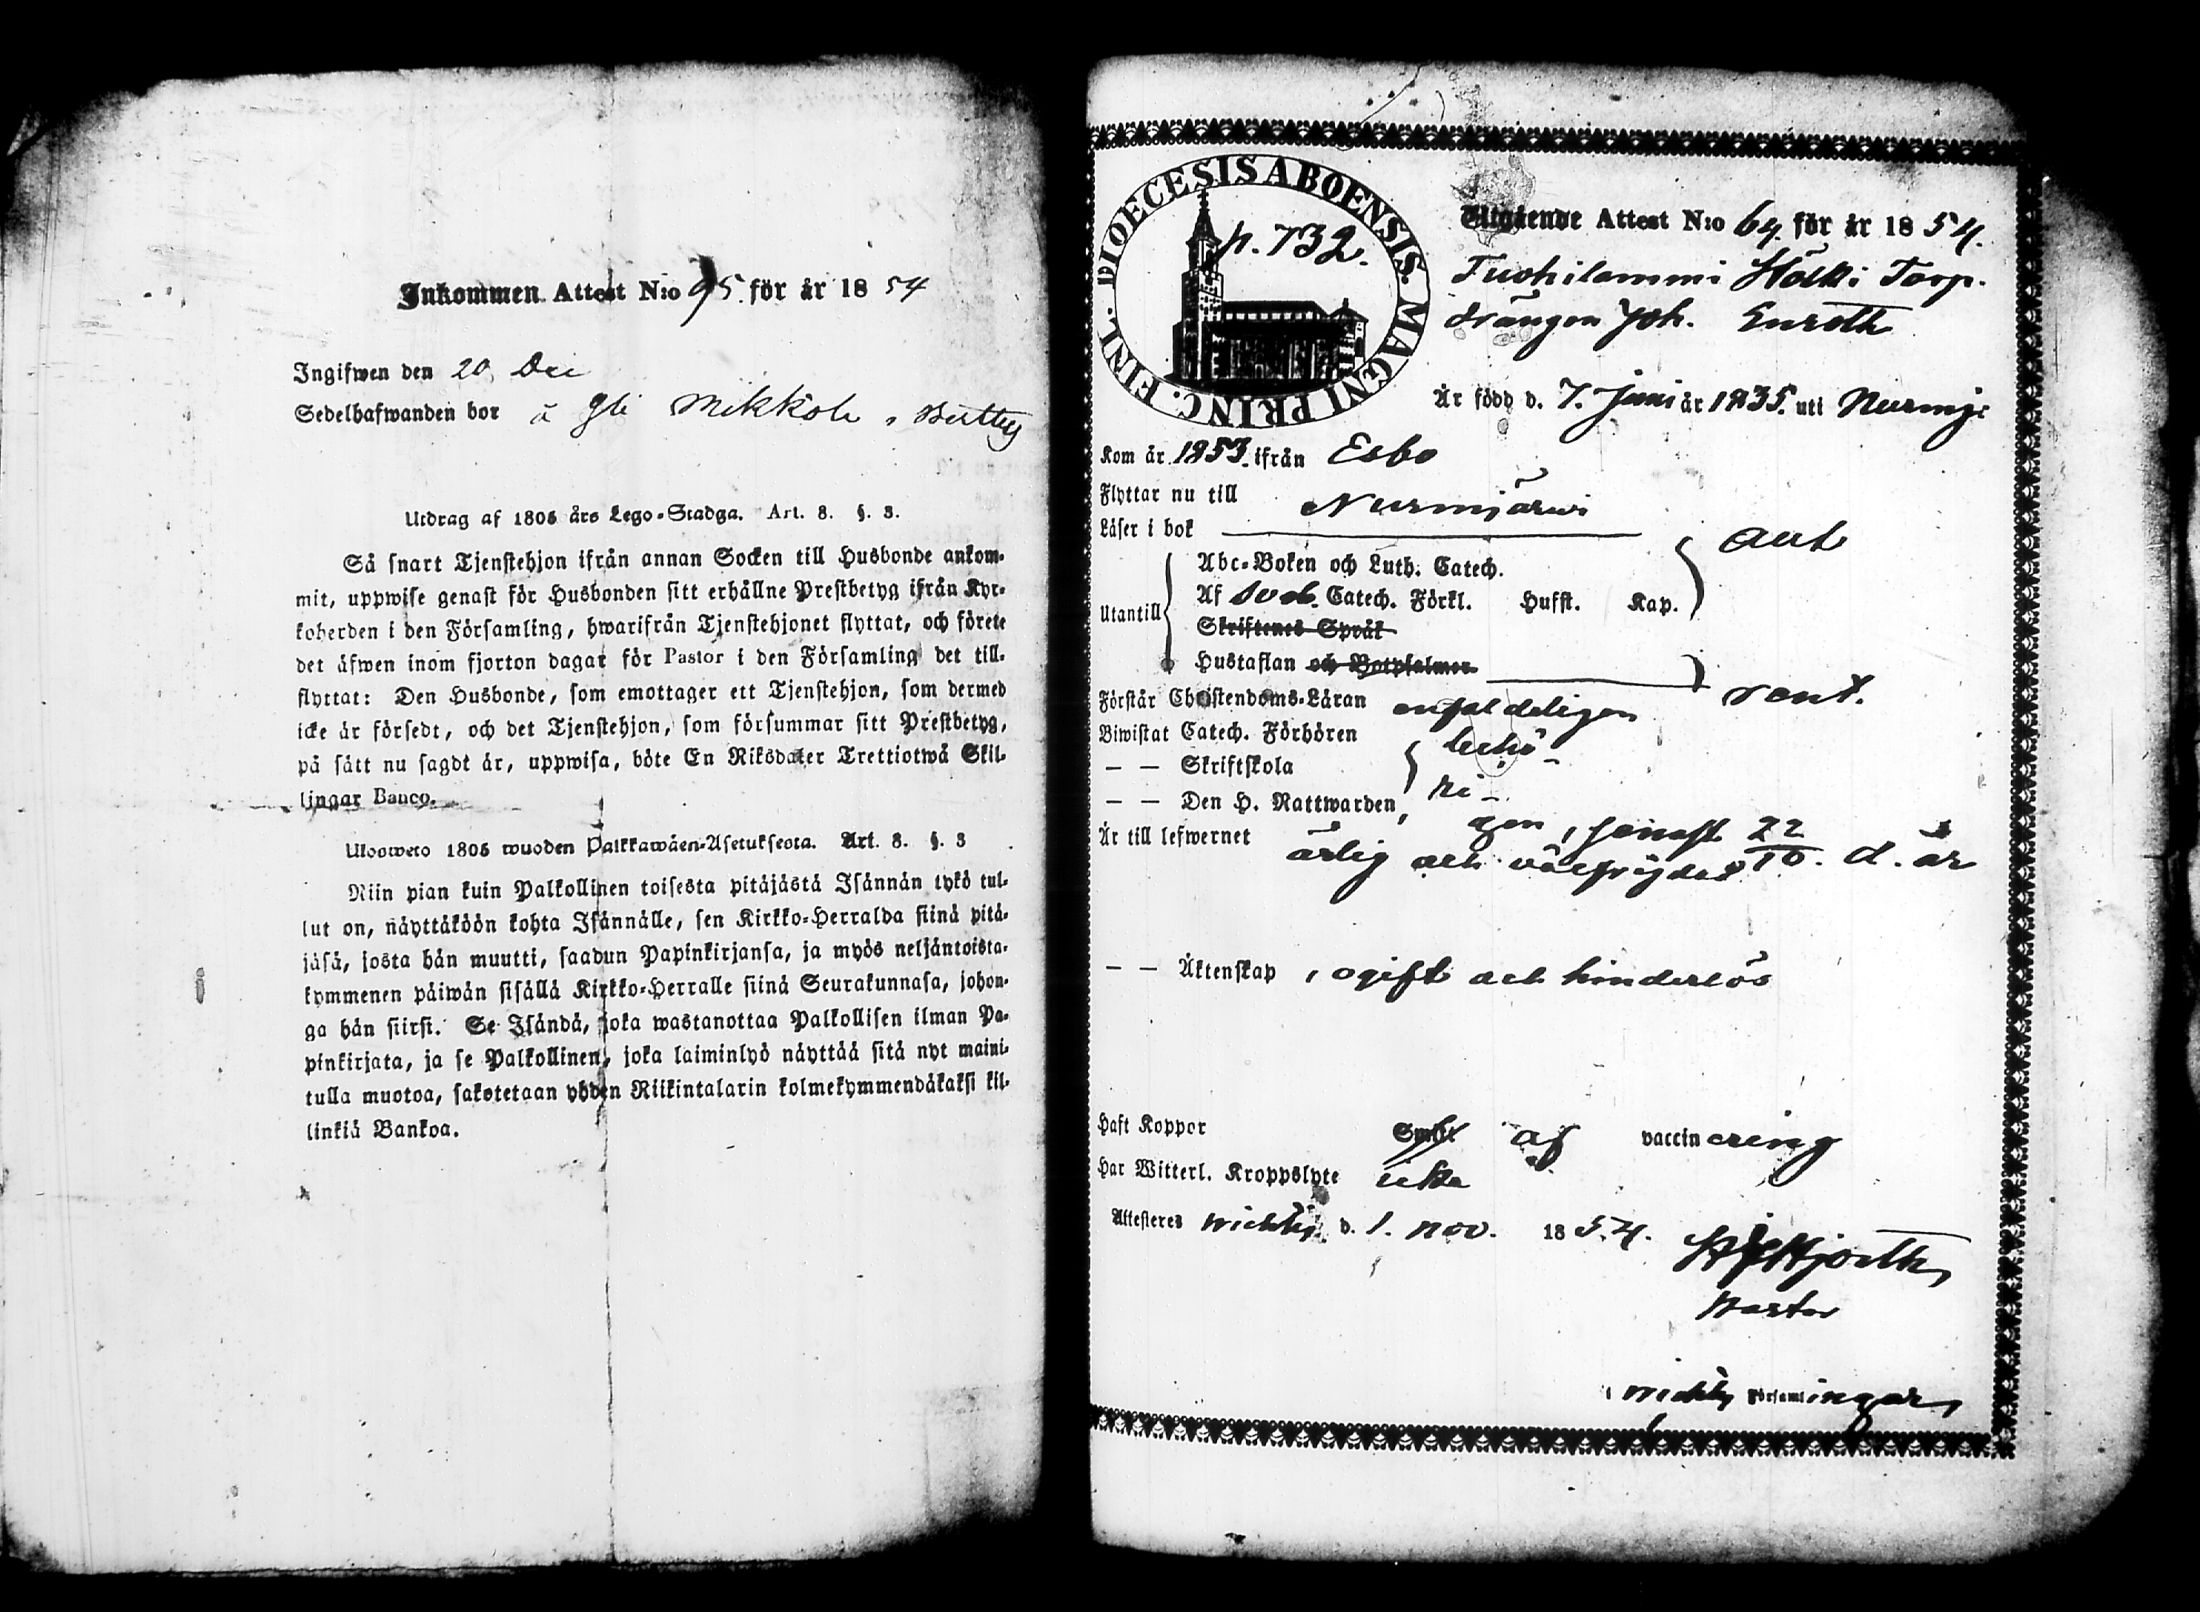 Inkommen Attest N:o 95 för år 1854
Ingifwen den 20 Dec
Sedelhafwanden bor å Gli Mikkola,
Utdrag af 1805 års Lego-Stadga. Art. 8. §. 3.
Så snart Tjenstehjon ifrån annan Socken till Husbonde ankom-
mit, uppwise genast för Husbonden sitt erhållne Prestbetyg ifrån Kyr-
koherden i den Församling, hwarifrån Tjenstehjonet flyttat, och förete
det äfwen inom fjorton dagar för Pastor i den Församling det till-
flyttat: Den Husbonde, som emottager ett Tjenstehjon, som dermed
icke är försedt, och det Tjenstehjon, som försummar sitt Prestbetyg,
på sätt nu sagdt är, uppwisa, böte En Riksdaler Trettiotwå Skil-
lingar Banco.
Ulosweto 1805 wuoden Palkkawäen-Asetuksesta. Art. 8. §. 3
Niin pian kuin Palkollinen toisesta pitäjästä Isännän tykö tul-
lut on, näyttäköön kohta Isännälle, sen Kirkko-Herralda siinä pitä-
jäsä, josta hän muutti, saadun Papinkirjansa, ja myös neljäntoista-
kymmenen päiwän sisällä Kirkko-Herralle siinä Seurakunnasa, johon-
ga hän siirsi. Se Isändä, joka wastanottaa Palkollisen ilman Pa-
pinkirjata, ja se Palkollinen, joka laiminlyö näyttää sitä nyt maini-
tulla muotoa, sakotetaan yhden Riikintalarin kolmekymmendäkaksi kil-
linkiä Bankoa.
DIOECESIS ABOENSIS. MAGNI PRINC. FINL.
p. 732.
Utgående Attest N:o 64. för år 1854.
Tuohilammi Hölki Torp.
drängen Joh. Enroth
Är född d. 7. Juni år 1835. uti Nurmij:
Kom år 1853. ifrån Esbo
Flyttar nu till Nurmijärwi
Läser i bok
Abc-Boken och Luth. Catech.
Utantill Af Sveb. Catech. Förkl. Husst. Kap.
Skriftenes Språk
Hustaflan och Botpsalmer
Förstår Christendoms-Läran enfaldeligen
Biwistat Catech. Förhören behö-
— — Skriftskola
— — Den H. Nattwarden, ri-
gen, senast 22/10. d. år
Är till lefwernet ärlig och välfrejdad
— — Äktenskap, ogift och hinderlös
Haft Koppor af vaccinering
Har Witterl. Kroppslyte icke
Attesteres Wichtis d. 1. Nov. 1854.
Hjorth,
Pastor
i Wichtis Församlingar,